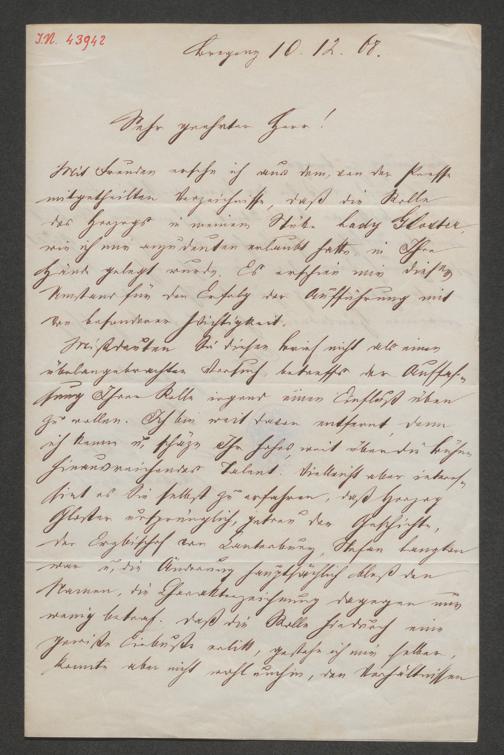 I.N. 43942
Bregenz 10. 12. 68.
Sehr geehrter Herr!
Mit Freuden ersehe ich aus dem, von der Presse
mitgetheilten Verzeichnisse, daß die Rolle
des Herzogs in meinem Stücke Lady Gloster,
wie ich mir anzudeuten erlaubt hatte, in Ihre
Hände gelegt wurde. Es erschien mir dieser
Umstand für den Erfolg der Aufführung mit
von besonderer Wichtigkeit.
Mißdeuten Sie diesen Brief nicht als einen
übelangebrachten Versuch, betreffs der Auffas-
sung Ihrer Rolle irgend einen Einfluß üben
zu wollen. Ich bin weit davon entfernt, denn
ich kenne u. schäze Ihr hohes, weit über die Bühne
hinausreichendes Talent. Vielleicht aber interes-
sirt es Sie selbst zu erfahren, daß Herzog
Gloster ursprünglich, getreu der Geschichte,
der Erzbischof von Canterbury, Stefan Langton
war u. die Änderung hauptsächlich bloß den
Namen, die Charakterzeichnung dagegen nur
wenig betraf. Daß die Rolle hiedurch eine
gewisse Einbuße erlitt, gestehe ich mir selber,
konnte aber nicht wohl umhin, den Verhältnissen